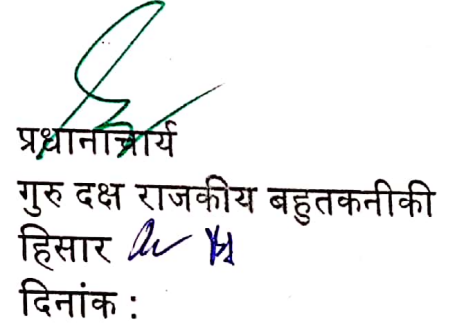 प्रधानाचार्य
गुरु दक्ष राजकीय बहुतकनीकी
हिसार
दिनांक :